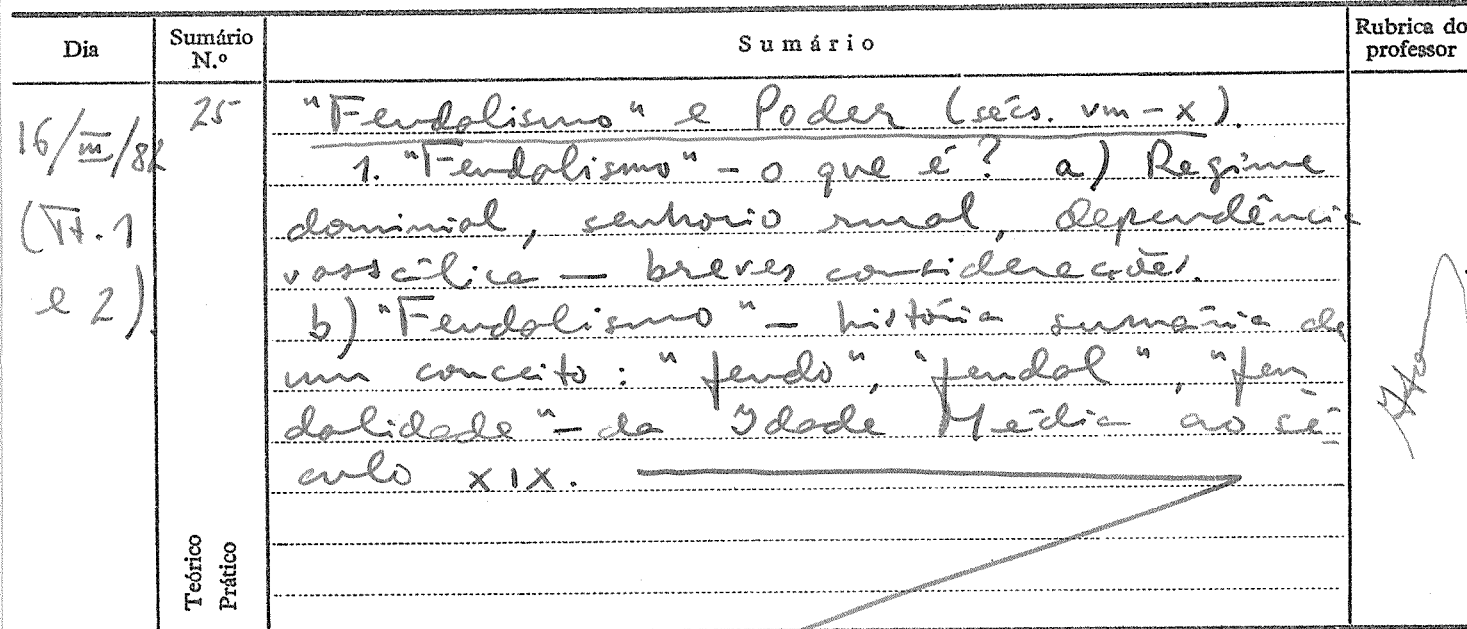 Dia
Sumário
N.º
Sumário
Rubrica do
professor
16/III/82
(TT. 1
e 2).
25
"Feudalismo" e Poder (sécs. VIII - X).
1. "Feudalismo" - o que é? a) Regime
dominial, senhorio rural, dependência
vassálica — breves considerações.
b) "Feudalismo" - história sumária de
um conceito: "feudo", "feudal", "feu
dalidade" - da Idade Média ao sé-
culo XIX.
Teórico
Prático